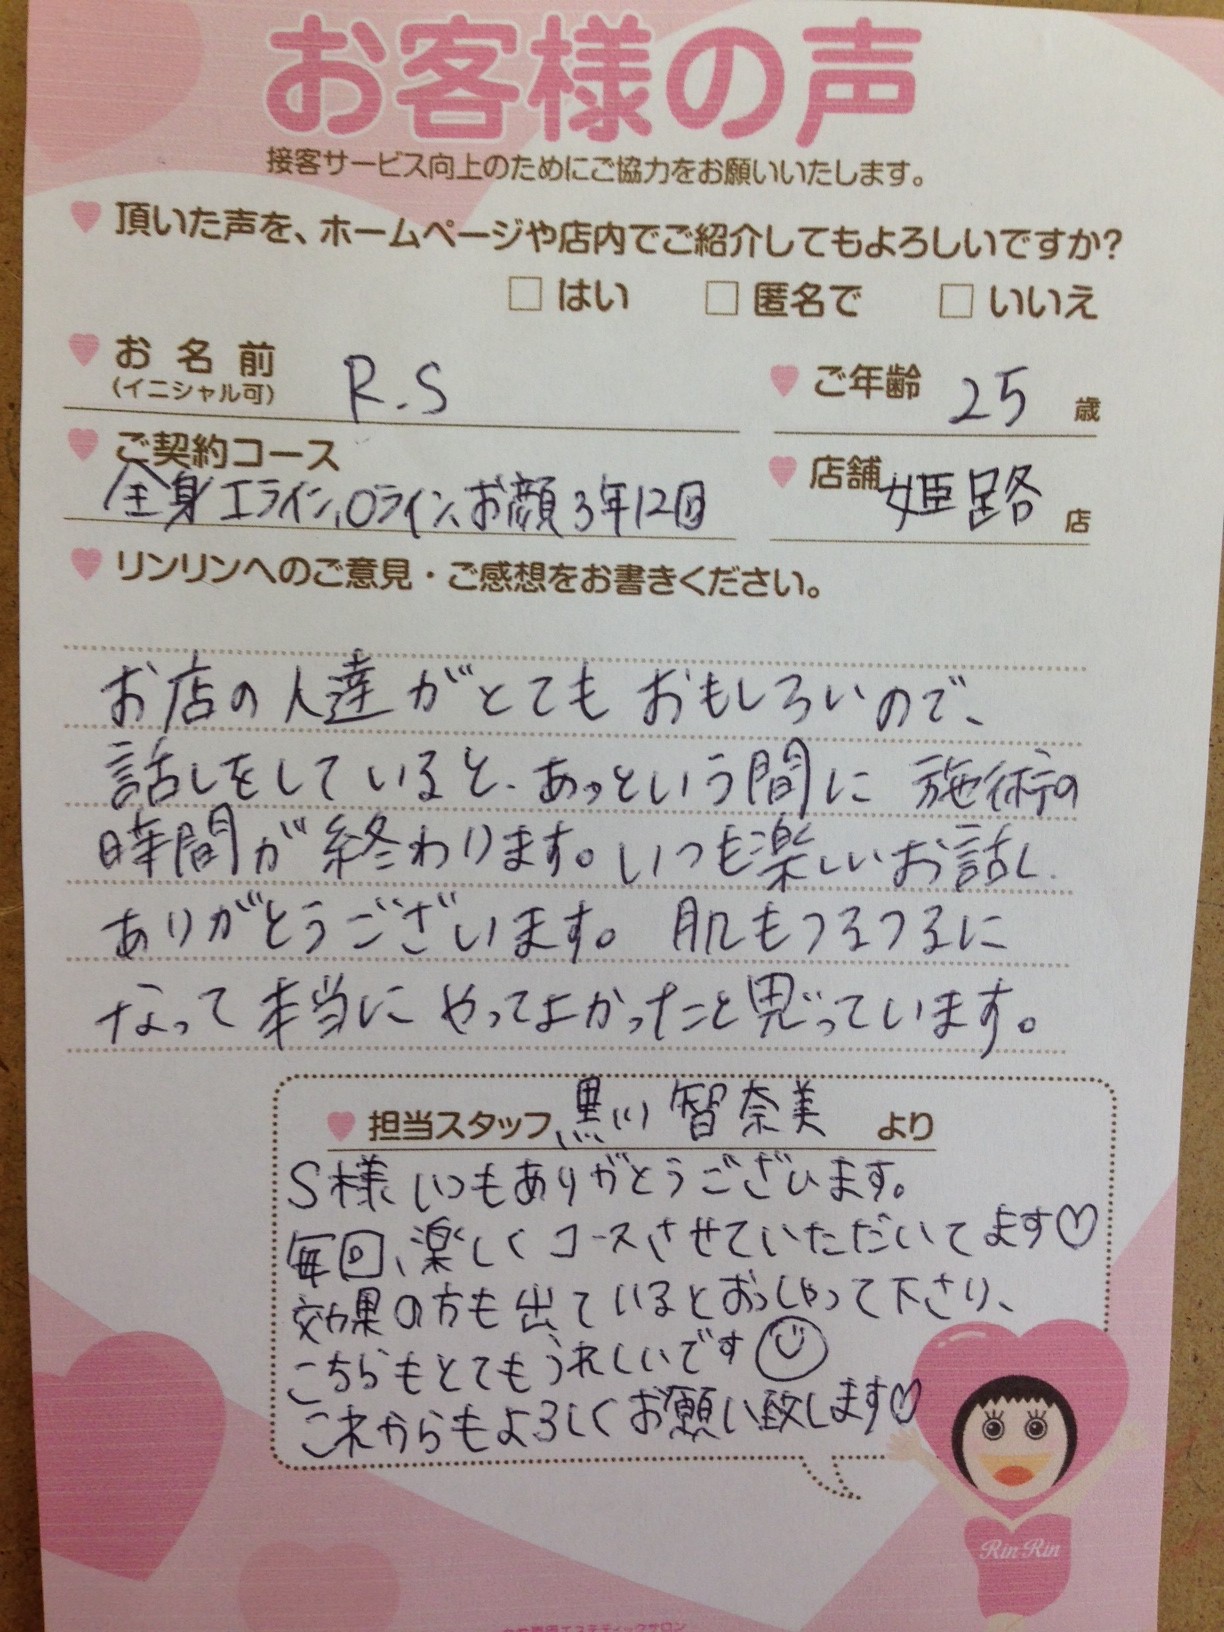 お客様の声
接客サービス向上のためにご協力をお願いいたします。
頂いた声を、ホームページや店内でご紹介してもよろしいですか?
□ はい □ 匿名で □ いいえ
お名前 R.S ご年齢 25 歳
(イニシャル可)
ご契約コース
全身 Iライン、Oライン、お顔 3年12回
店舗 姫路 店
リンリンへのご意見・ご感想をお書きください。
お店の人達がとてもおもしろいので、
話しをしていると、あっという間に 施術の
時間が終わります。いつも楽しいお話し
ありがとうございます。肌もつるつるに
なって本当にやってよかったと思っています。
担当スタッフ 黒川 智奈美 より
S様、いつもありがとうございます。
毎回、楽しくコースさせていただいてます♡
効果の方も出ているとおっしゃって下さり、
こちらもとてもうれしいです☺
これからもよろしくお願い致します♡
Rin Rin